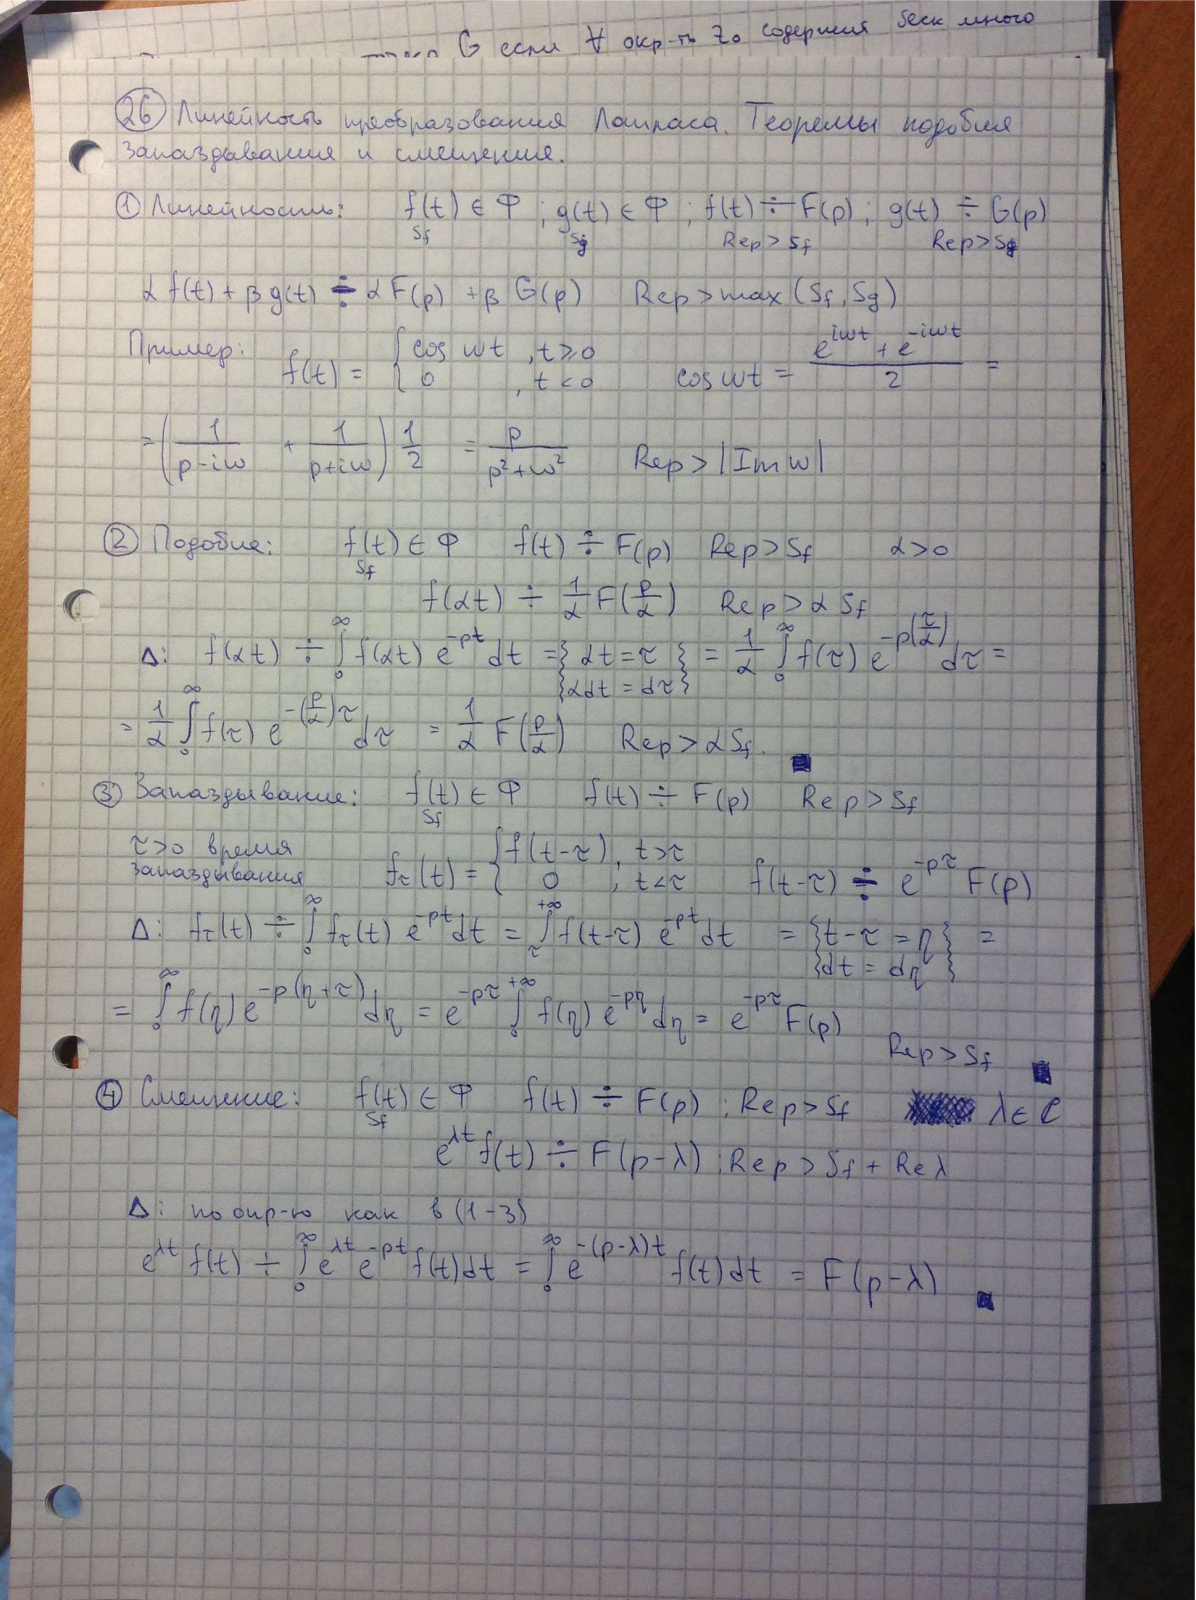 G если ∀ окр-ть z₀ содержит беск много
26 Линейность преобразования Лапласа. Теоремы подобия
запаздывания и смещения.
① Линейность: f(t) ∈ Φ ; g(t) ∈ Φ ; f(t) ÷ F(p) ; g(t) ÷ G(p)
Sf Sg Rep > Sf Rep > Sg
αf(t) + βg(t) ÷ αF(p) + βG(p) Rep > max (Sf, Sg)
Пример: f(t) = { cos ωt , t ≥ 0
0 , t < 0 cos ωt = (e^{iωt} + e^{-iωt})/2 =
= (1/(p-iω) + 1/(p+iω)) 1/2 = p/(p²+ω²) Rep > |Im ω|
② Подобие: f(t) ∈ Φ f(t) ÷ F(p) Rep > Sf α > 0
Sf
f(αt) ÷ 1/α F(p/α) Rep > αSf
Δ: f(αt) ÷ ∫₀^∞ f(αt) e^{-pt} dt = { αt = τ } = 1/α ∫₀^∞ f(τ) e^{-p(τ/α)} dτ =
{ αdt = dτ }
= 1/α ∫₀^∞ f(τ) e^{-(p/α)τ} dτ = 1/α F(p/α) Rep > αSf.
③ Запаздывание: f(t) ∈ Φ f(t) ÷ F(p) Rep > Sf
Sf
τ>0 время
запаздывания f_τ(t) = { f(t-τ), t>τ
0 , t<τ f(t-τ) ÷ e^{-pτ} F(p)
Δ: f_τ(t) ÷ ∫₀^∞ f_τ(t) e^{-pt} dt = ∫_τ^{+∞} f(t-τ) e^{-pt} dt = { t-τ = η } =
{ dt = dη }
= ∫₀^∞ f(η) e^{-p(η+τ)} dη = e^{-pτ} ∫₀^{+∞} f(η) e^{-pη} dη = e^{-pτ} F(p)
Rep > Sf
④ Смещение: f(t) ∈ Φ f(t) ÷ F(p) ; Rep > Sf λ ∈ ℂ
Sf
e^{λt} f(t) ÷ F(p-λ) ; Rep > Sf + Reλ
Δ: по опр-ю как в (1-3)
e^{λt} f(t) ÷ ∫₀^∞ e^{λt} e^{-pt} f(t) dt = ∫₀^∞ e^{-(p-λ)t} f(t) dt = F(p-λ)